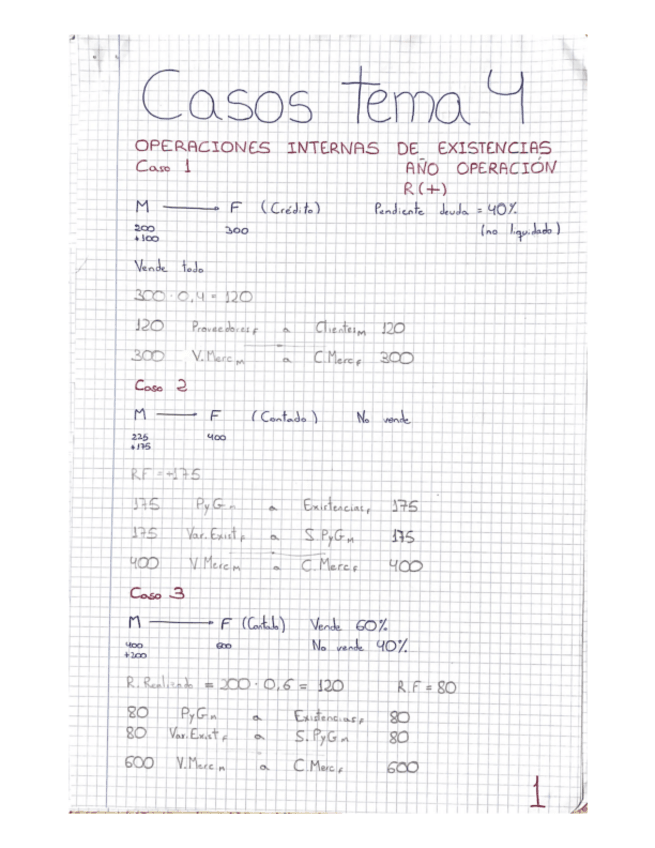 Casos tema 4
OPERACIONES INTERNAS DE EXISTENCIAS
Caso 1 AÑO OPERACIÓN
R(+)
M → F (Crédito) Pendiente deuda = 40%
200 300 (no liquidado)
+100
Vende todo
300 · 0,4 = 120
120 Proveedores F a Clientes M 120
300 V. Merc M a C. Merc F 300
Caso 2
M → F (Contado) No vende
225 400
+175
RF = +175
175 PyG M a Existencias F 175
175 Var. Exist F a S. PyG M 175
400 V. Merc M a C. Merc F 400
Caso 3
M → F (Contado) Vende 60%
400 600 No vende 40%
+200
R. Realizado = 200 · 0,6 = 120 R.F = 80
80 PyG M a Existencias F 80
80 Var. Exist F a S. PyG M 80
600 V. Merc M a C. Merc F 600
1